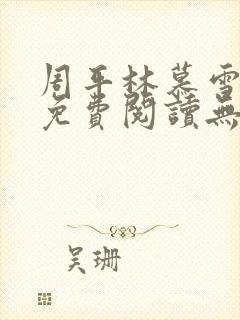 周平林慕雪
免費閱讀無
吴珊